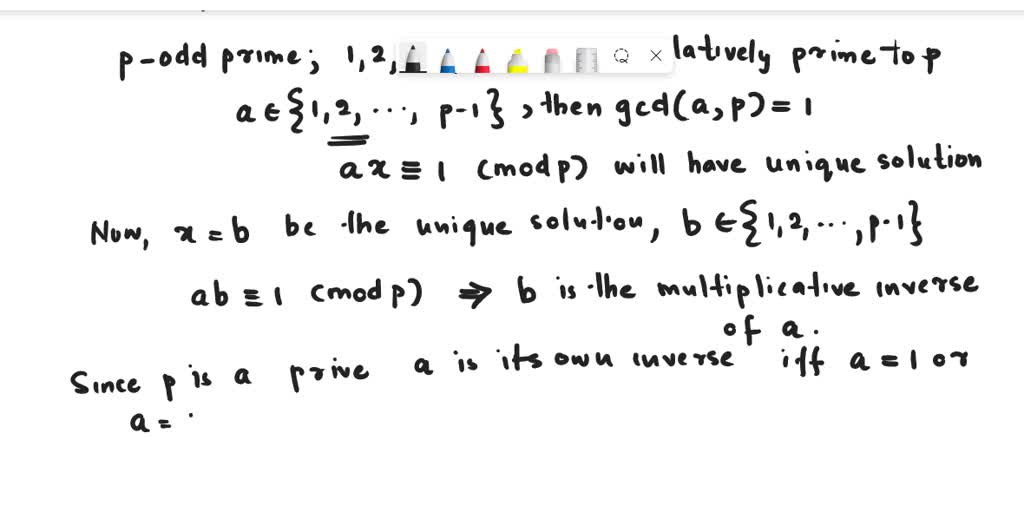 p-odd prime; 1, 2, latively prime to p
a ∈ {1, 2, ..., p-1}, then gcd(a, p) = 1
ax ≡ 1 (mod p) will have unique solution
Now, x = b be the unique solution, b ∈ {1, 2, ..., p-1}
ab ≡ 1 (mod p) ⇒ b is the multiplicative inverse
of a.
Since p is a prive a is its own inverse iff a = 1 or
a =